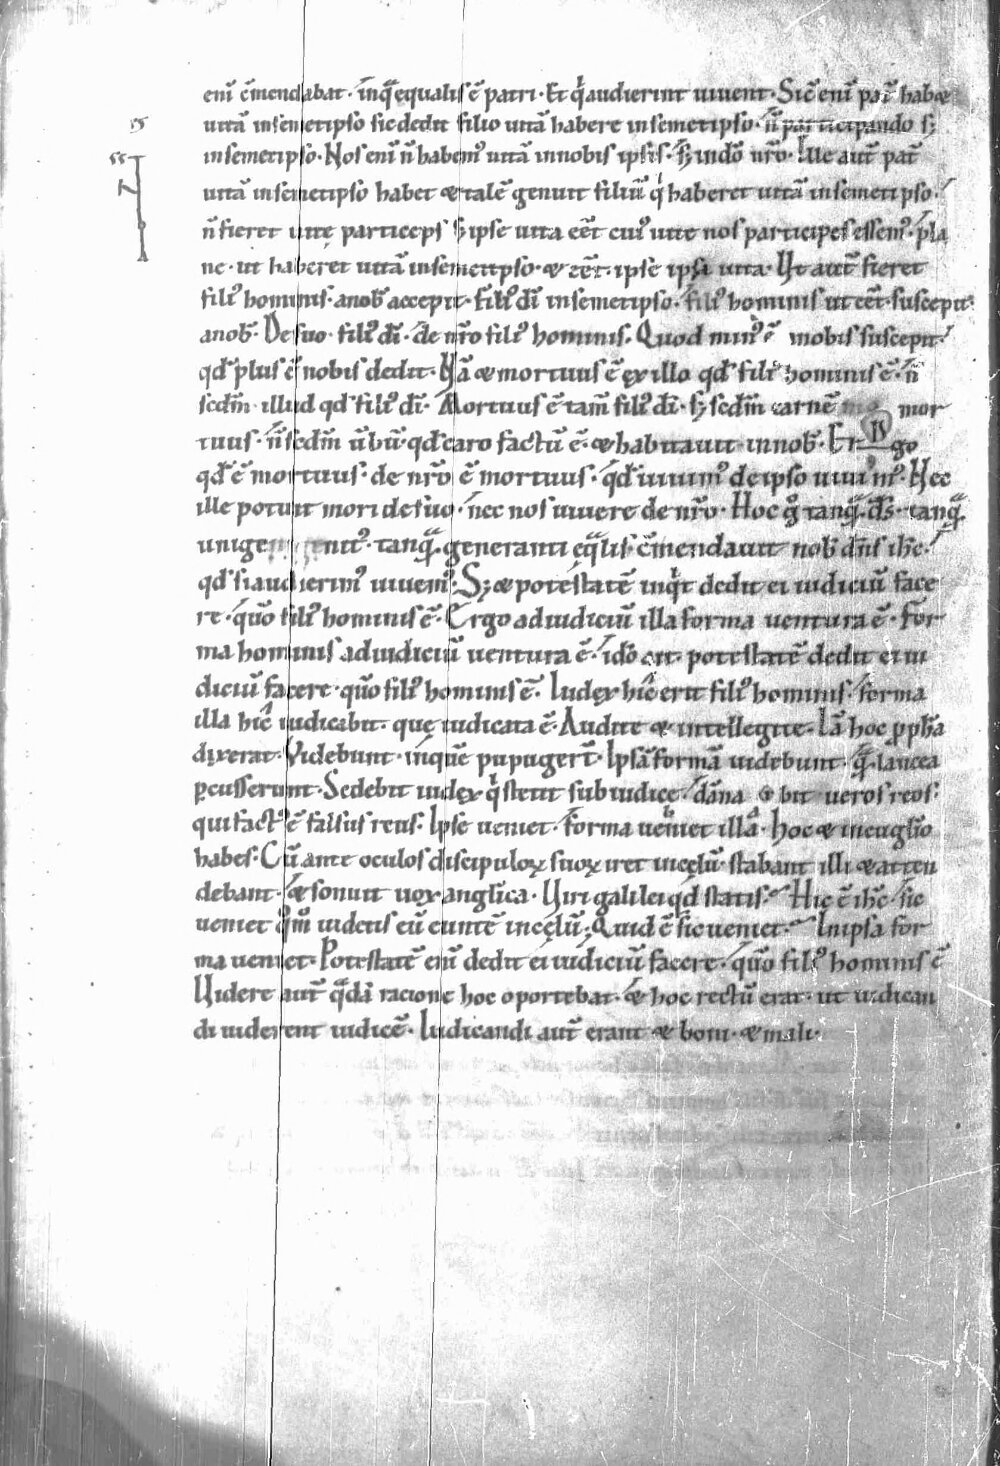 enī c̄mendabat · inq̄ equalis ē patri · Et q̇ audierint uiuent · Sic̄ enī pat̄ hab&
uitā insemetipso sic dedit filio uitā habere in semetipso · n̄ participando sꝫ
insemetipso · Nos enī n̄ habem᷒ uitā innobis ipsis · sꝫ indō nr̄o · Ille aut̄ pat̄
uitā insemetipso habet & talē genuit filiū q̇ haberet uitā insemetipso ·
n̄ fieret uitę particeps sꝫ ipse uita eēt cui᷒ uitę nos participes essem᷒ · pla
ne · ut haberet uitā insemetipso · & eēt · ipse ipsa uita · Ut aut̄ fieret
fili᷒ hominis · anob̄ accepit · fili᷒ dī insemetipso · fili᷒ hominis ut eēt · suscepit
anob̄ · De suo · fili᷒ dī · de nr̄o fili᷒ hominis · Quod min᷒ ē nobis suscepit
qd̄ plus ē nobis dedit · Nā & mortuus ē ex illo qd̄ fili᷒ hominis ē · n̄
scdm̄ · illud qd̄ fili᷒ dī · Mortuus ē tam̄ fili᷒ dī · sꝫ scdm̄ carnē mor
tuus · n̄ scdm̄ ūbū · qd̄ caro factū ē · & habitauit innob̄ · Ergo
qd̄ ē mortuus · de nr̄o ē mortuus · qd̄ uiuim᷒ de ipso uiuim᷒ · Nec
ille potuit mori de suo · nec nos uiuere de nr̄o · Hoc g̊ tanq̄ · ds̄ · tanq̄
unigenit᷒ · tanq̄ · generanti eq̄lis · c̄mendauit nob̄ dn̄s ihc̄ ·
qd̄ si audierim᷒ uiuem᷒ · Sꝫ & potestatē inq̇t dedit ei iudiciū face
re · quō fili᷒ hominis ē · Ergo ad iudiciū illa forma uentura ē · For
ma hominis ad iudiciū uentura ē · idō ait · potestatē dedit ei iu
diciū facere · quō fili᷒ hominis ē · Iudex hic̄ erit fili᷒ hominis · forma
illa hic̄ iudicabit · quę iudicata ē · Audite & intellegite · Iā hoc ꝓph̄a
dixerat · Videbunt · inquē pupugert̄ · Ipsā formā uidebunt · q̄ · lancea
ꝑcusserunt · Sedebit iudex q̇ stetit sub iudice · dāna bit ueros reos ·
qui fact᷒ ē falsus reus · Ipse ueniet · forma ueniet illa · Hoc & ineuglīo
habes · Cū ante oculos discipuloꝝ suoꝝ iret incęlū · stabant illi & atten
debant · & sonuit uox anglica · Uiri galilei qd̄ statis · Hic ē ihc̄ · sic
ueniet qm̄ uidetis eū euntē incęlū · Quid ē sic ueniet · Inipsa for
ma ueniet · Potestatē enī dedit ei iudiciū facere · quō fili᷒ hominis ē
Uidere aut̄ q̄dā racione hoc oportebat · & hoc rectū erat · ut iudican
di uiderent iudicē · Iudicandi aut̄ erant & boni · & mali ·